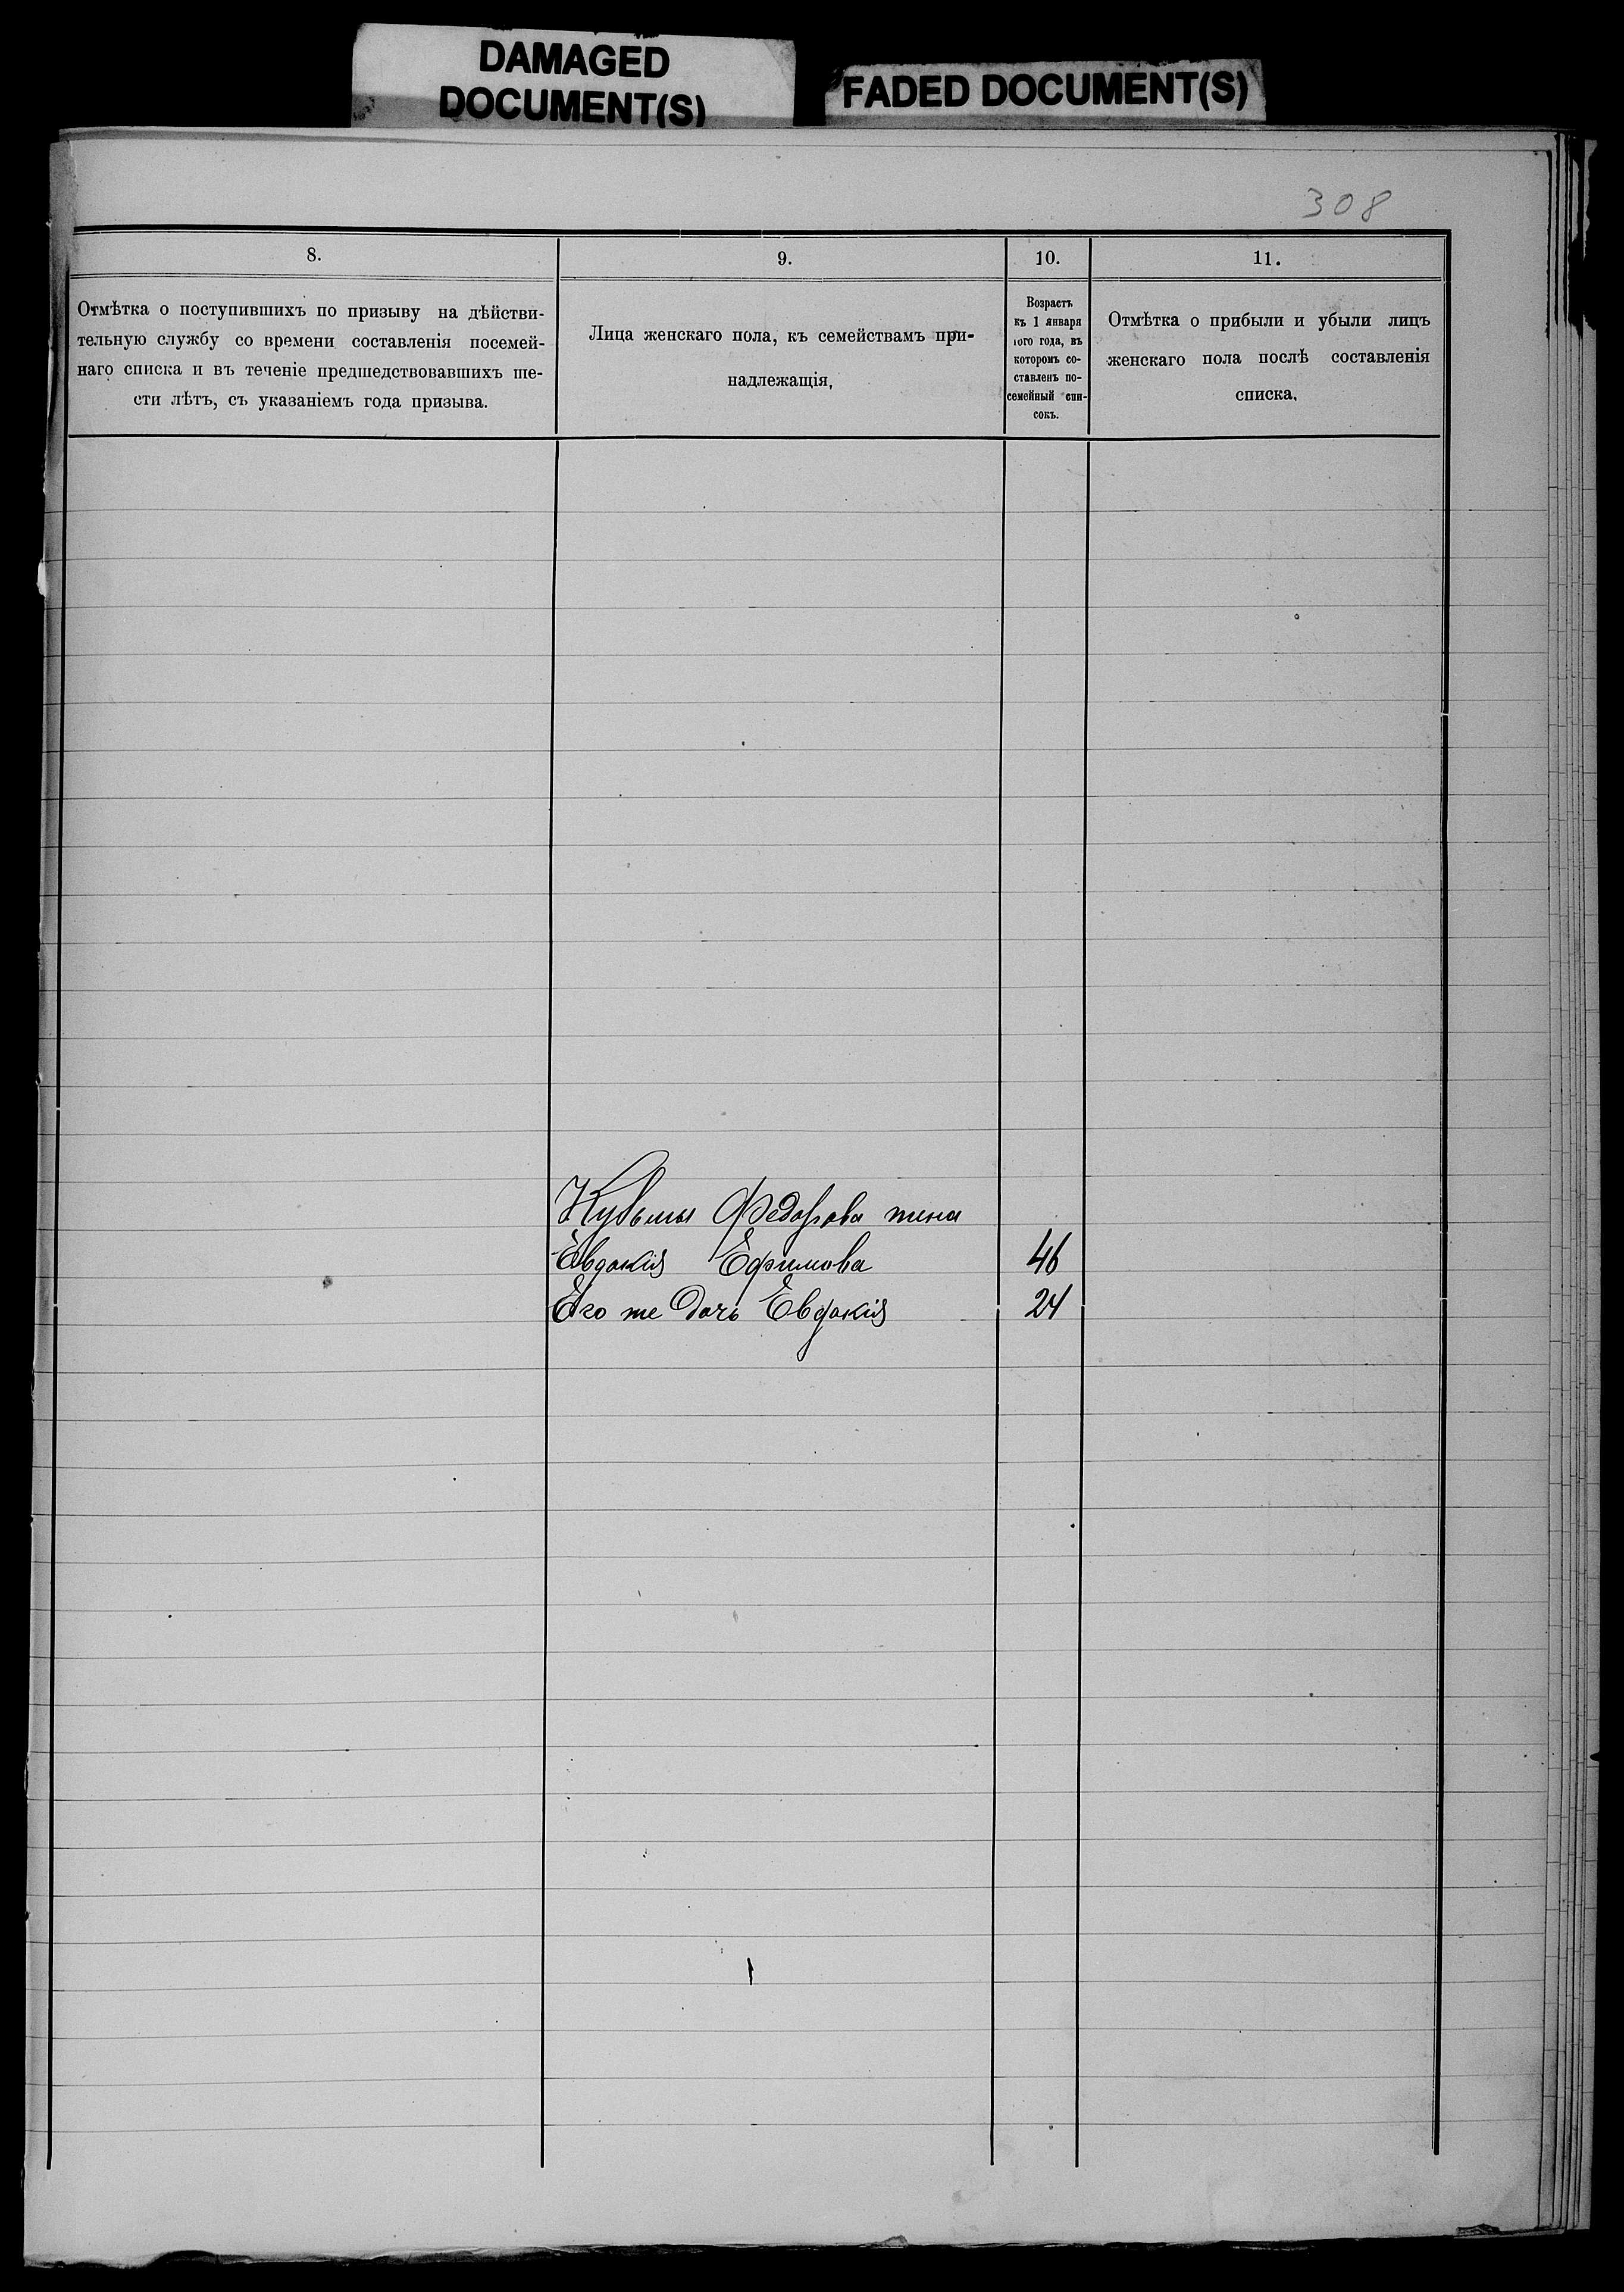 DAMAGED
DOCUMENT(S)
FADED DOCUMENT(S)
308
8.
9.
10.
11.
Отмѣтка о поступившихъ по призыву на дѣйстви-
тельную службу со времени составленія посемей-
наго списка и въ теченіе предшедствовавшихъ ше-
сти лѣтъ, съ указаніемъ года призыва.
Лица женскаго пола, къ семействамъ при-
надлежащія,
Возрастъ
къ 1 января
того года, въ
которомъ со-
ставленъ по-
семейный спи-
сокъ.
Отмѣтка о прибыли и убыли лицъ
женскаго пола послѣ составленія
списка,
Кузьмы Федорова жена
Евдокія Ефимова 46
Его же дочь Евдокія 24